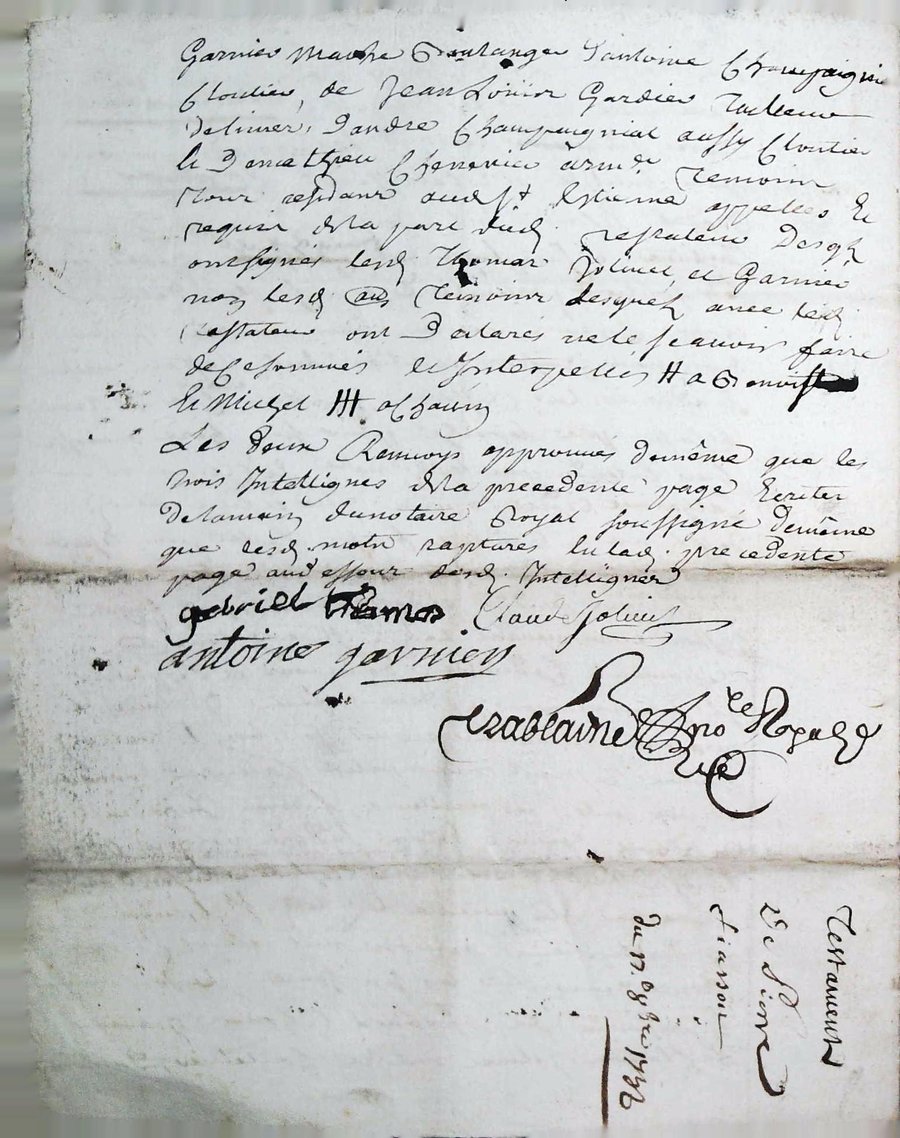 Garnier Maitre Boulanger D'antoine Champaignia
Cloutier, de Jean Louis Gardier Tailleur
De limes, D'andré Champaignial aussy Cloutier
& De mathieu Chenevier armr. Temoins
Tous residans aud. St. Estienne appellés &
requis de la part dud. Testateur Desqls
ont signés lesd. Thomas Joliuet, et Garnier
non lesd. aus Temoins desquels avec led.
Testateur ont Declarés ne le scauoir faire
de Ce sommés & Interpellés # a Benoist
& Michel ### a Chacun
Les deux Renuoys approuués de même que les
trois Intellignes de la precedente page Ecrites
De la main du notaire Royal soussigné de même
que lesd. mots raptures En lad. precedente
page au dessous desd. Intellignes
gabriel thomas Claude Joliuet
antoine garnier
no.re Royal
Testament
De Pierre
du 17.e 8bre 1732